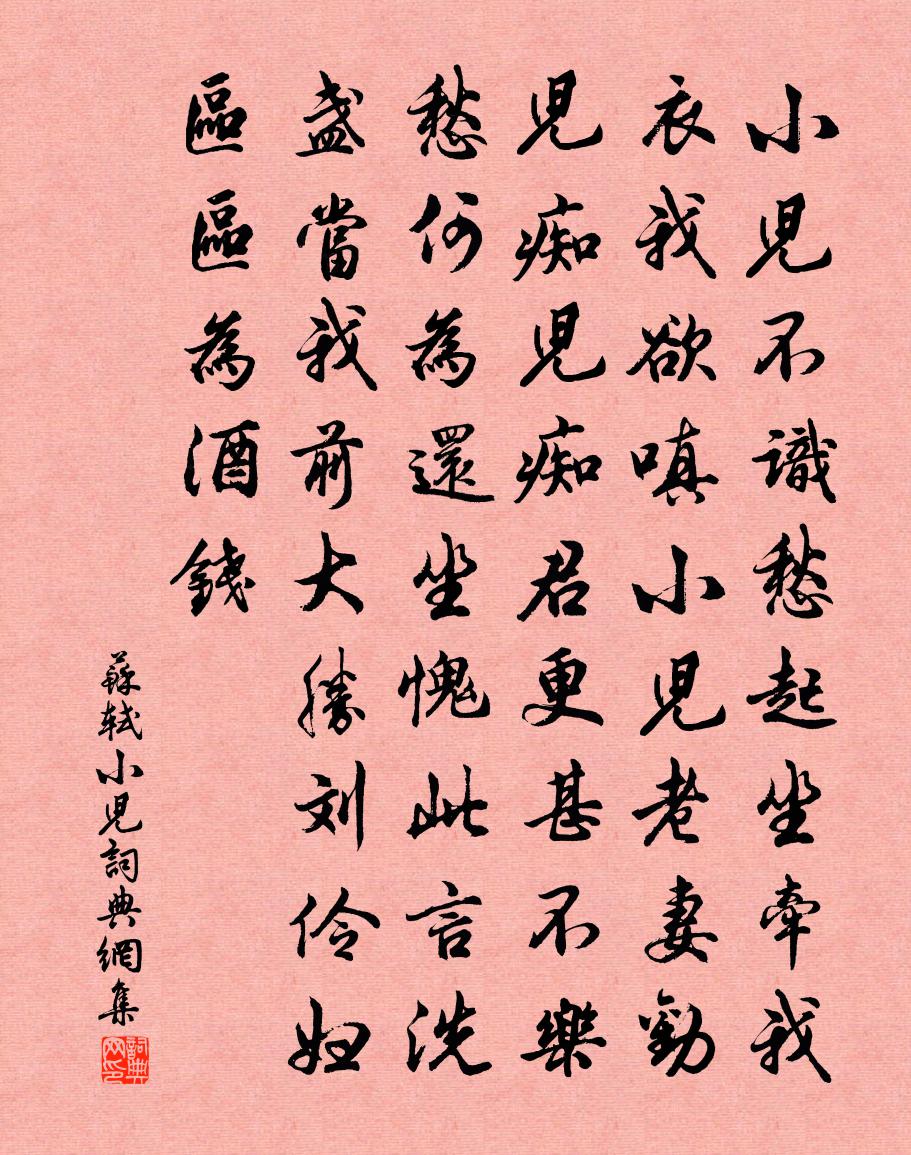 小児不識愁起坐牽我
衣我欲嗔小児老妻勸
児痴児痴君更甚不樂
愁何為還坐愧此言洗
盞當我前大勝刘伶婦
區區為酒錢
蘇軾小児詞典網集
詞典网印